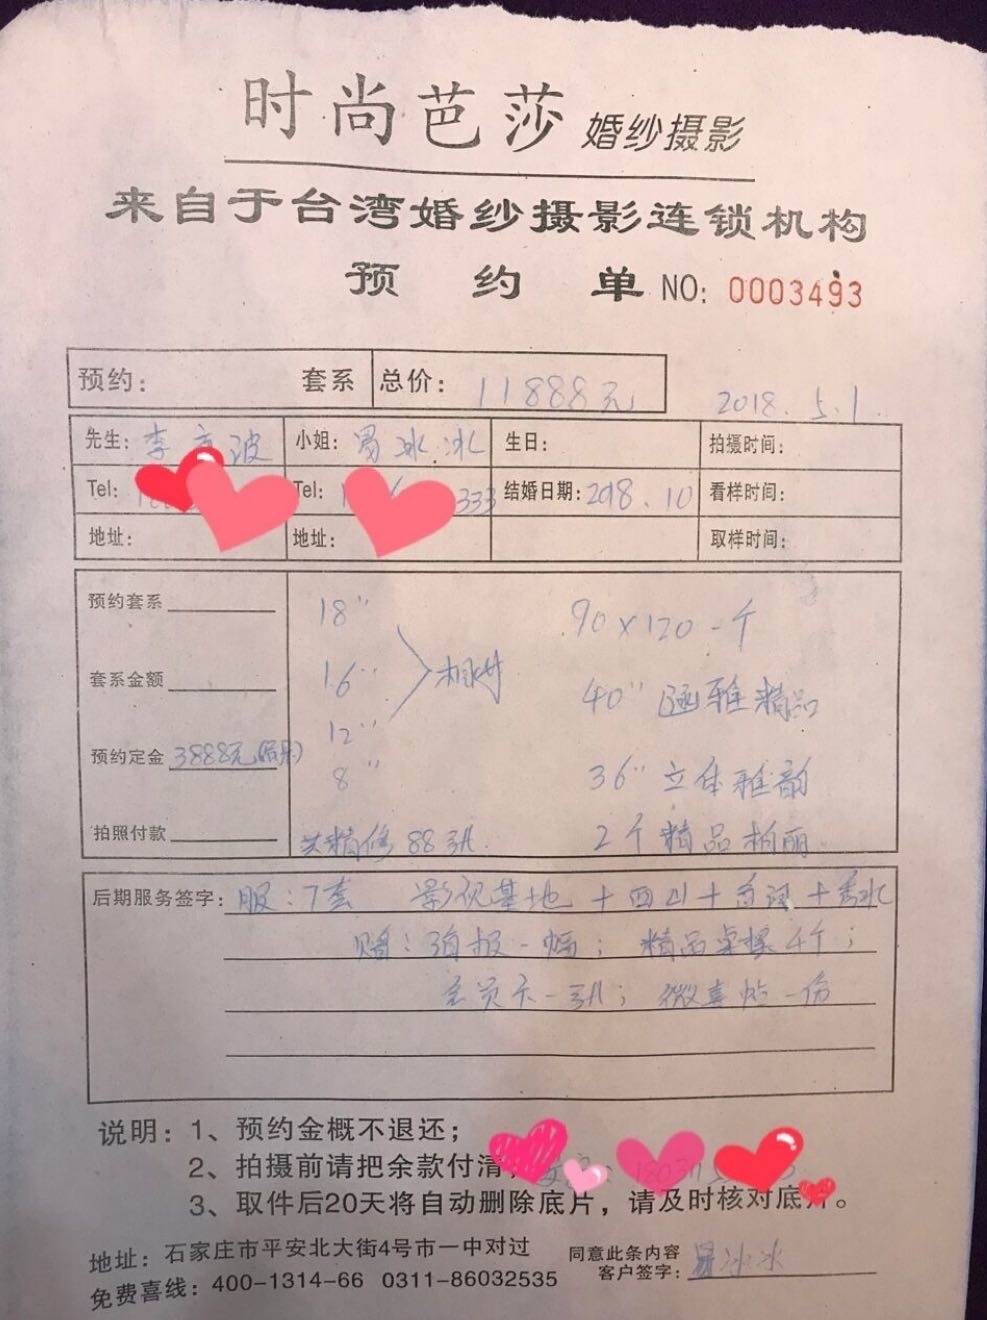 时尚芭莎 婚纱摄影
来自于台湾婚纱摄影连锁机构
预 约 单 NO: 0003493
预约: 套系 总价: 11888元
2018.5.1.
先生: 李 波 小姐: 易冰冰 生日: 拍摄时间:
Tel: Tel: 333 结婚日期: 2018.10 看样时间:
地址: 地址: 取样时间:
预约套系 18" 90×120一个
套系金额 16" 相册 40" 雅精品
12"
预约定金 3888元
8" 36" 立体雅韵
拍照付款 共精修88张. 2个精品柏丽
后期服务签字: 服:7套 影视基地+四山+ + 水
赠:海报一幅; 精品桌摆4个;
会员卡一张; 微喜帖一份
说明: 1、预约金概不退还;
2、拍摄前请把余款付清
3、取件后20天将自动删除底片,请及时核对底片。
地址: 石家庄市平安北大街4号市一中对过
同意此条内容
免费喜线: 400-1314-66 0311-86032535
客户签字: 易冰冰